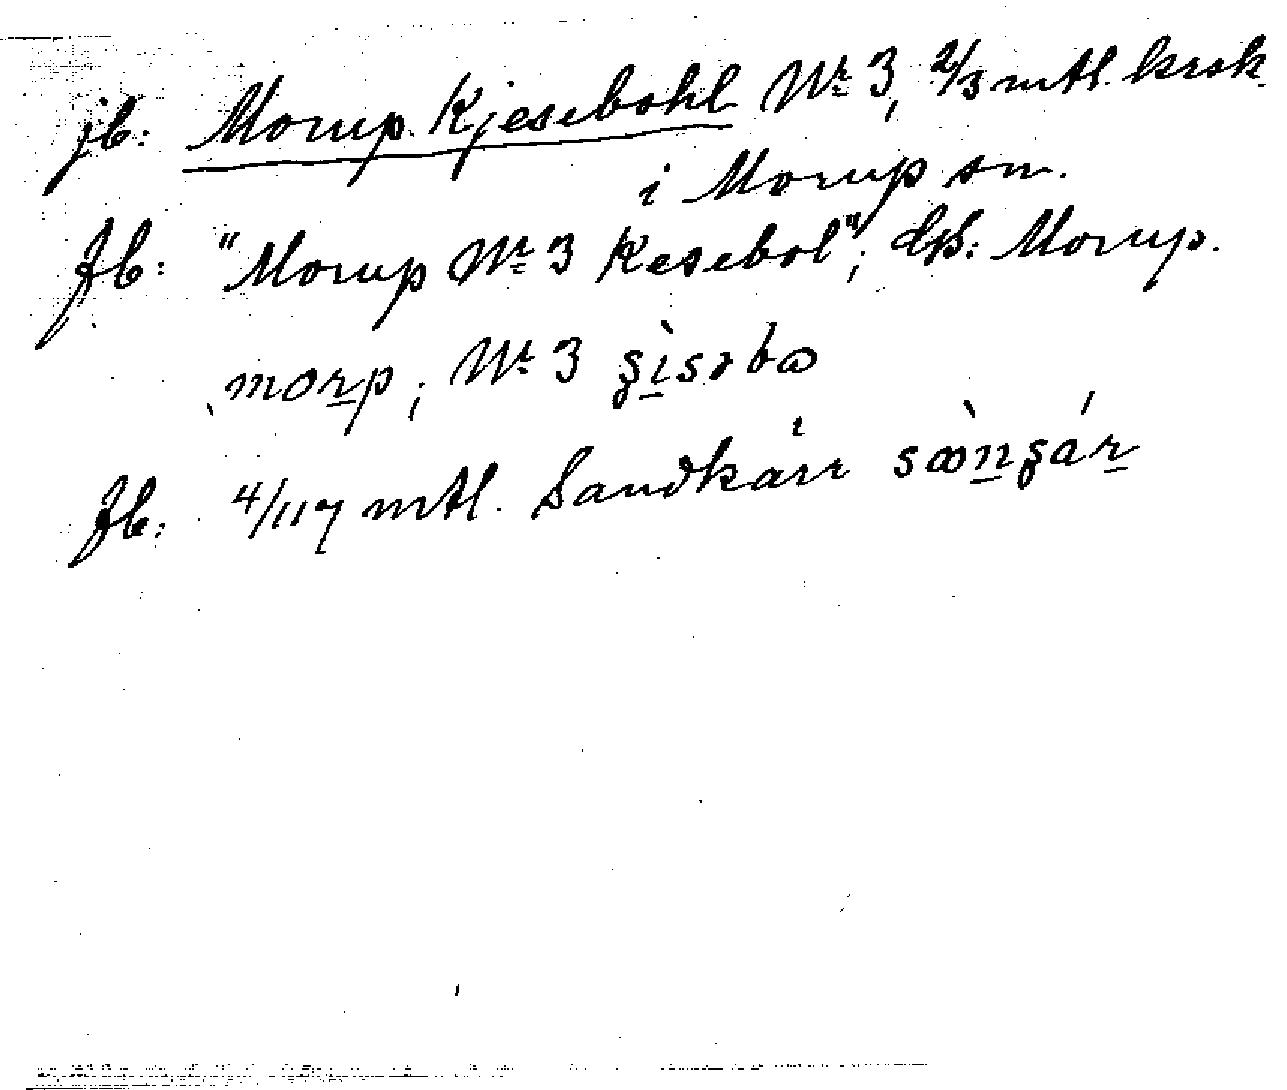 jb: Morup Kjesebohl Nr 3, 2/3 mtl. krsk.
i Morup sn.
Jb: "Morup Nr 3 Kesebol"; Morup.
morp; Nr 3
Jb: 4/117 mtl. Sandkärr